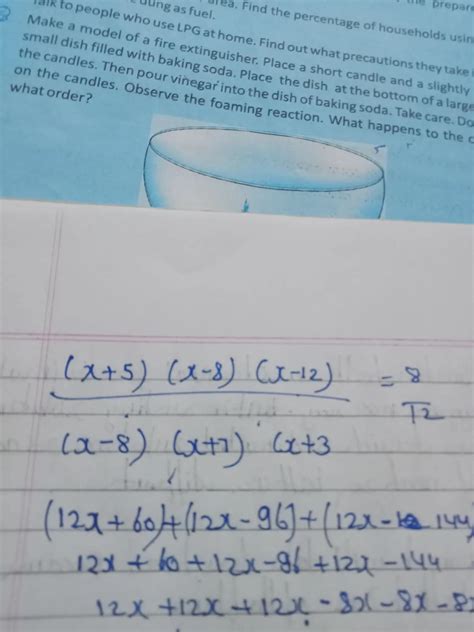 area. Find the percentage of households usin
dung as fuel.
Talk to people who use LPG at home. Find out what precautions they take
Make a model of a fire extinguisher. Place a short candle and a slightly
small dish filled with baking soda. Place the dish at the bottom of a large
the candles. Then pour vinegar into the dish of baking soda. Take care. Do
on the candles. Observe the foaming reaction. What happens to the c
what order?
(x+5) (x-8) (x-12) = 8
(x-8) (x+7) (x+3 12
(12x + 60)+(12x - 96)+(12x - 144)
12x + 60 + 12x - 96 + 12x - 144
12x + 12x + 12x - 8x - 8x - 8x